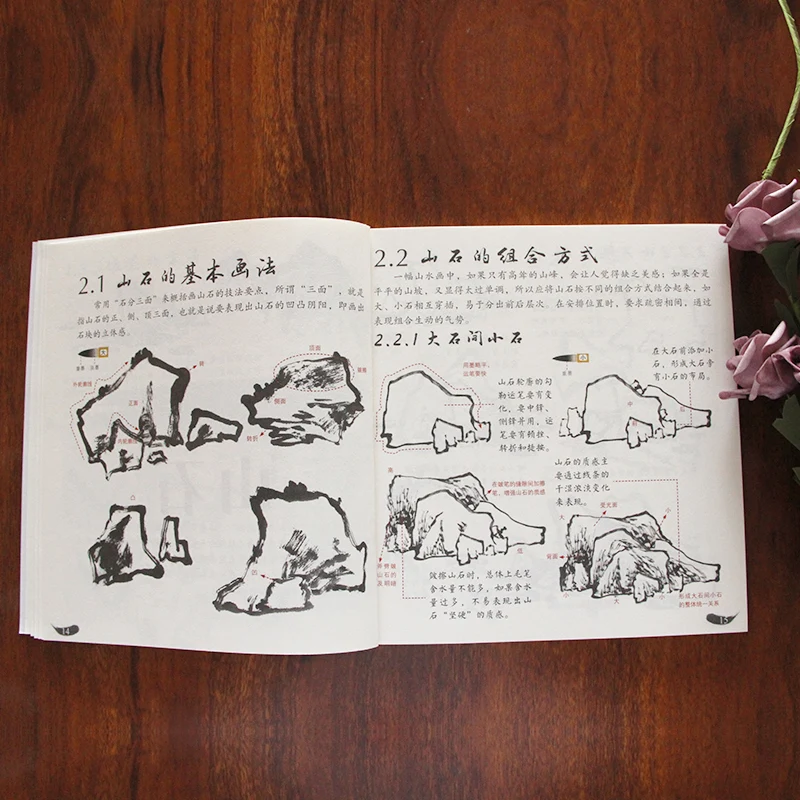 2.1 山石的基本画法
常用“石分三面”来概括画山石的技法要点，所谓“三面”，就是
指山石的正、侧、顶三面，也就是说要表现出山石的凹凸阴阳，即画出
石块的立体感。
转
顶面
正面
侧面
转折
凸
凹
14
2.2 山石的组合方式
一幅山水画中，如果只有高耸的山峰，会让人觉得缺乏美感；如果全是
平平的山坡，又显得太过单调，所以应将山石按不同的组合方式结合起来，如
大、小石相互穿插，易于分出前后层次。在安排位置时，要求疏密相间，通过
表现组合生动的气势。
2.2.1 大石间小石
用墨略干，
出笔要快
山石轮廓的勾
勒运笔要有变
化，要中锋、
侧锋并用，运
笔要有顿挫、
转折和提按。
小
中
前
后
在大石前添加小
石，形成大石旁
有小石的布局。
高
低
山石的质感主
要通过线条的
干湿浓淡变化
来表现。
皴擦山石时，总体上毛笔
含水量不能多，如果含水
量过多，不易表现出山
石“坚硬”的质感。
大
受光面
小
背面
小
大
小
形成大石间小石
的整体统一关系
15